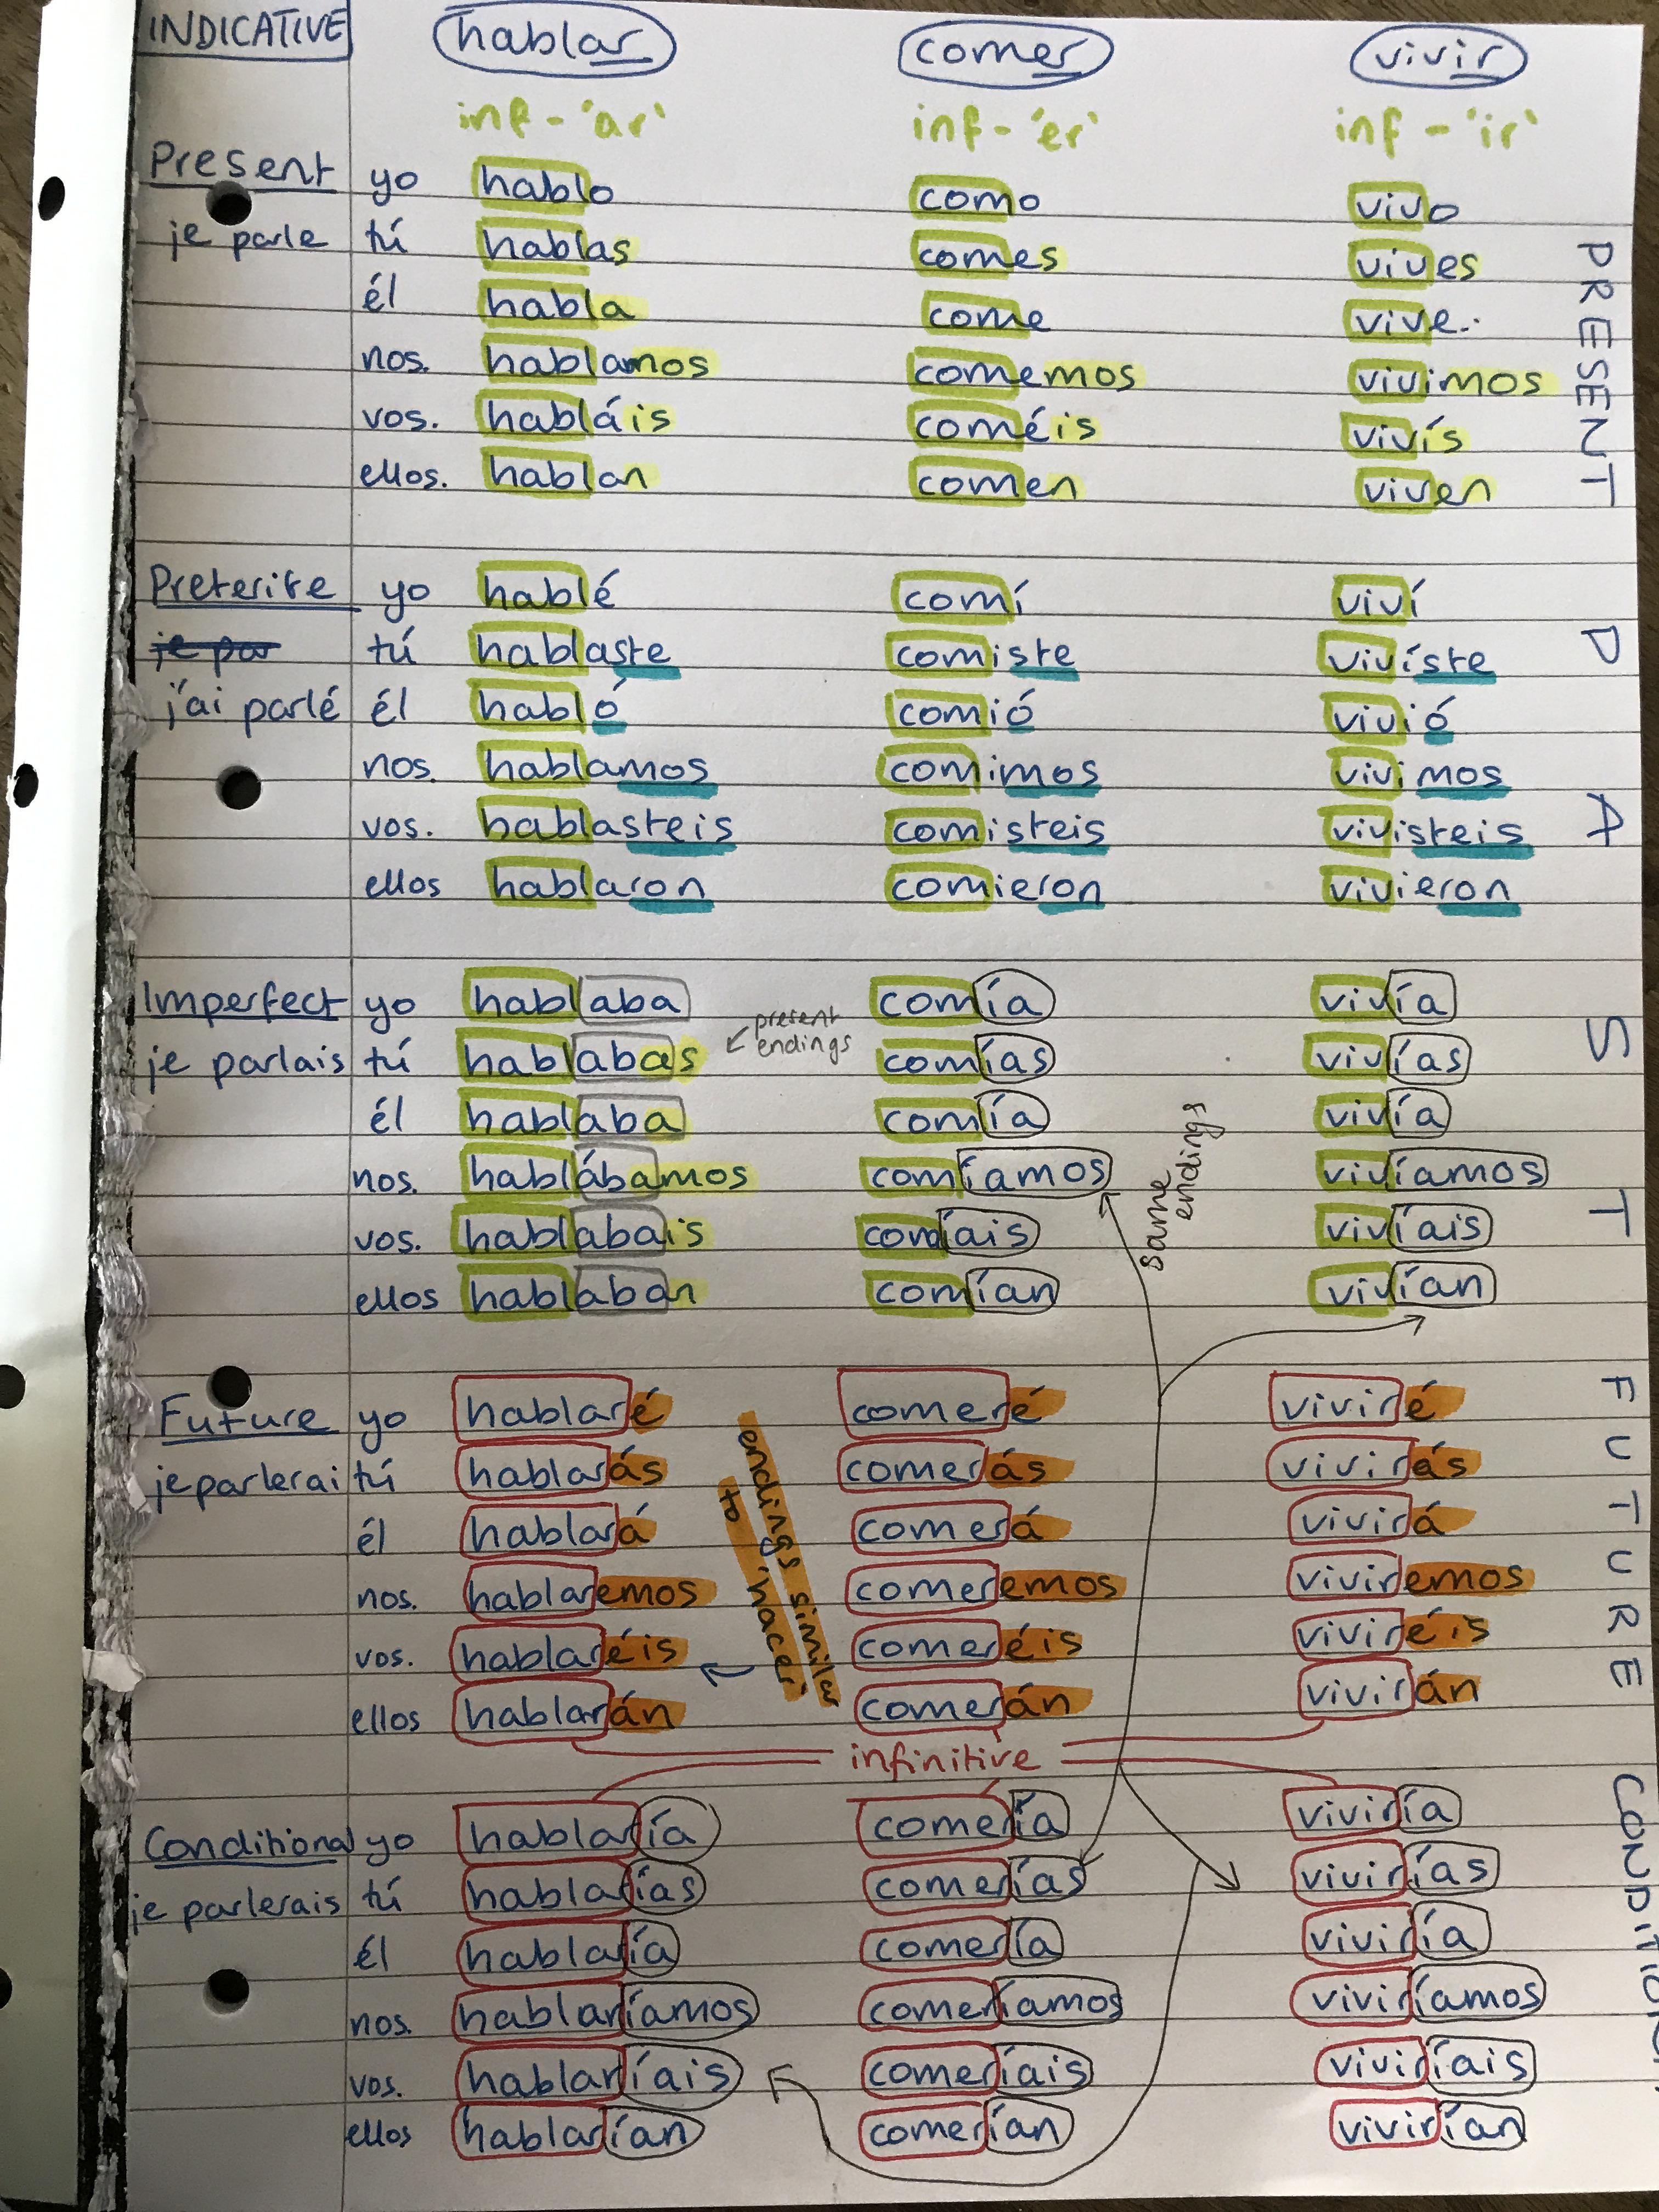 INDICATIVE hablar comer vivir
inf - 'ar' inf - 'er' inf - 'ir'
Present yo hablo como vivo
je parle tú hablas comes vives
él habla come vive.
nos. hablamos comemos vivimos
vos. habláis coméis vivís
ellos. hablan comen viven
PRESENT
Preterite yo hablé comí viví
je par tú hablaste comiste vivíste
j'ai parlé él habló comió vivió
nos. hablamos comimos vivimos
vos. hablasteis comisteis vivisteis
ellos hablaron comieron vivieron
Imperfect yo hablaba comía vivía
present endings
je parlais tú hablabas comías vivías
él hablaba comía vivía
nos. hablábamos comíamos vivíamos
same endings
vos. hablabais comíais vivíais
ellos hablaban comían vivían
PAST
Future yo hablaré comeré viviré
je parlerai tú hablarás comerás vivirás
él hablará comerá vivirá
nos. hablaremos comeremos viviremos
vos. hablaréis comeréis viviréis
ellos hablarán comerán vivirán
endings similar
to 'hacer'
FUTURE
infinitive
Conditional yo hablaría comería viviría
je parlerais tú hablarías comerías vivirías
él hablaría comería viviría
nos. hablaríamos comeríamos viviríamos
vos. hablaríais comeríais viviríais
ellos hablarían comerían vivirían